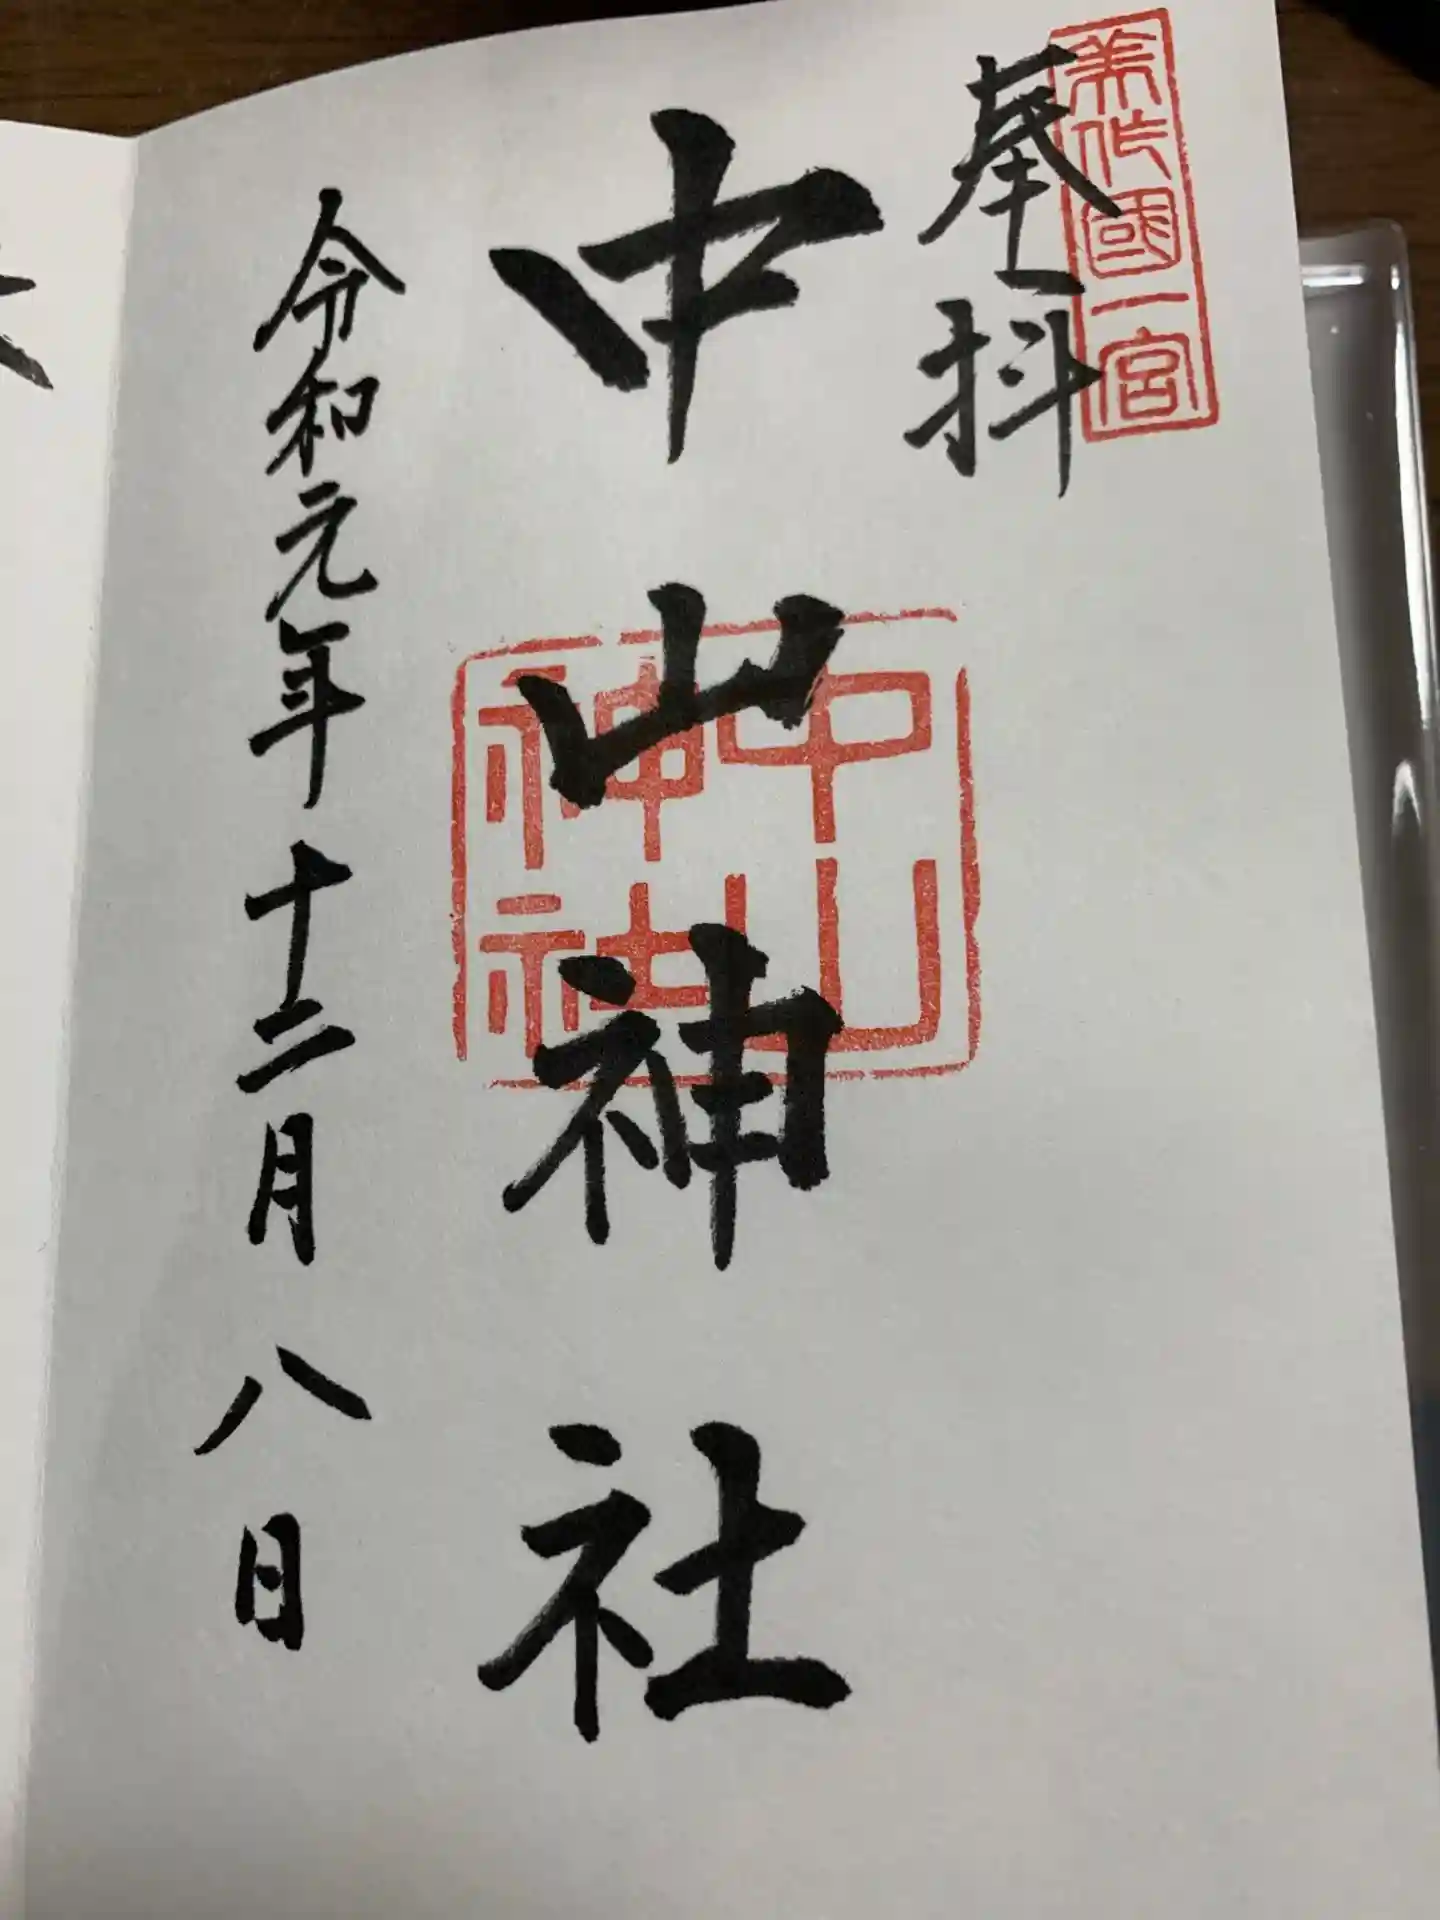 美作國一宮
奉拝
中山神社
中山
神社
令和元年十二月八日